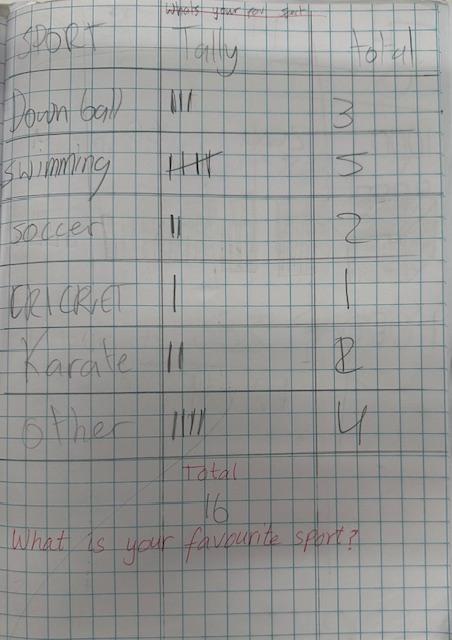 What's your fav sport
SPORT Tally total
Down ball III 3
swimming 5
soccer II 2
CRICKET I 1
Karate II 2
other IIII 4
Total
16
What is your favourite sport?